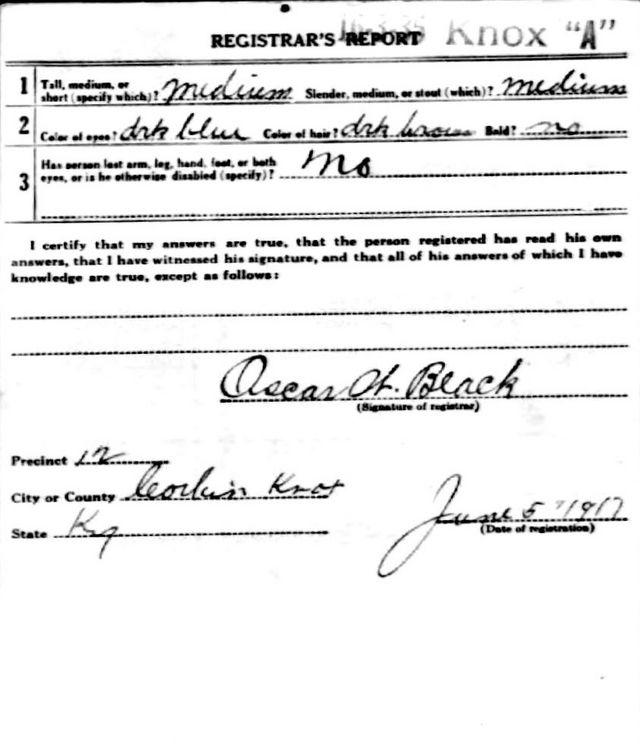 REGISTRAR'S REPORT 16-3-35 Knox "A"
1 Tall, medium, or short (specify which)? medium Slender, medium, or stout (which)? medium
2 Color of eyes? drk blue Color of hair? drk brown Bald? no
3 Has person lost arm, leg, hand, foot, or both
eyes, or is he otherwise disabled (specify)? No
I certify that my answers are true, that the person registered has read his own
answers, that I have witnessed his signature, and that all of his answers of which I have
knowledge are true, except as follows:
Oscar H. Black
(Signature of registrar)
Precinct 12
City or County Corbin Knox
State Ky
June 5 1917
(Date of registration)